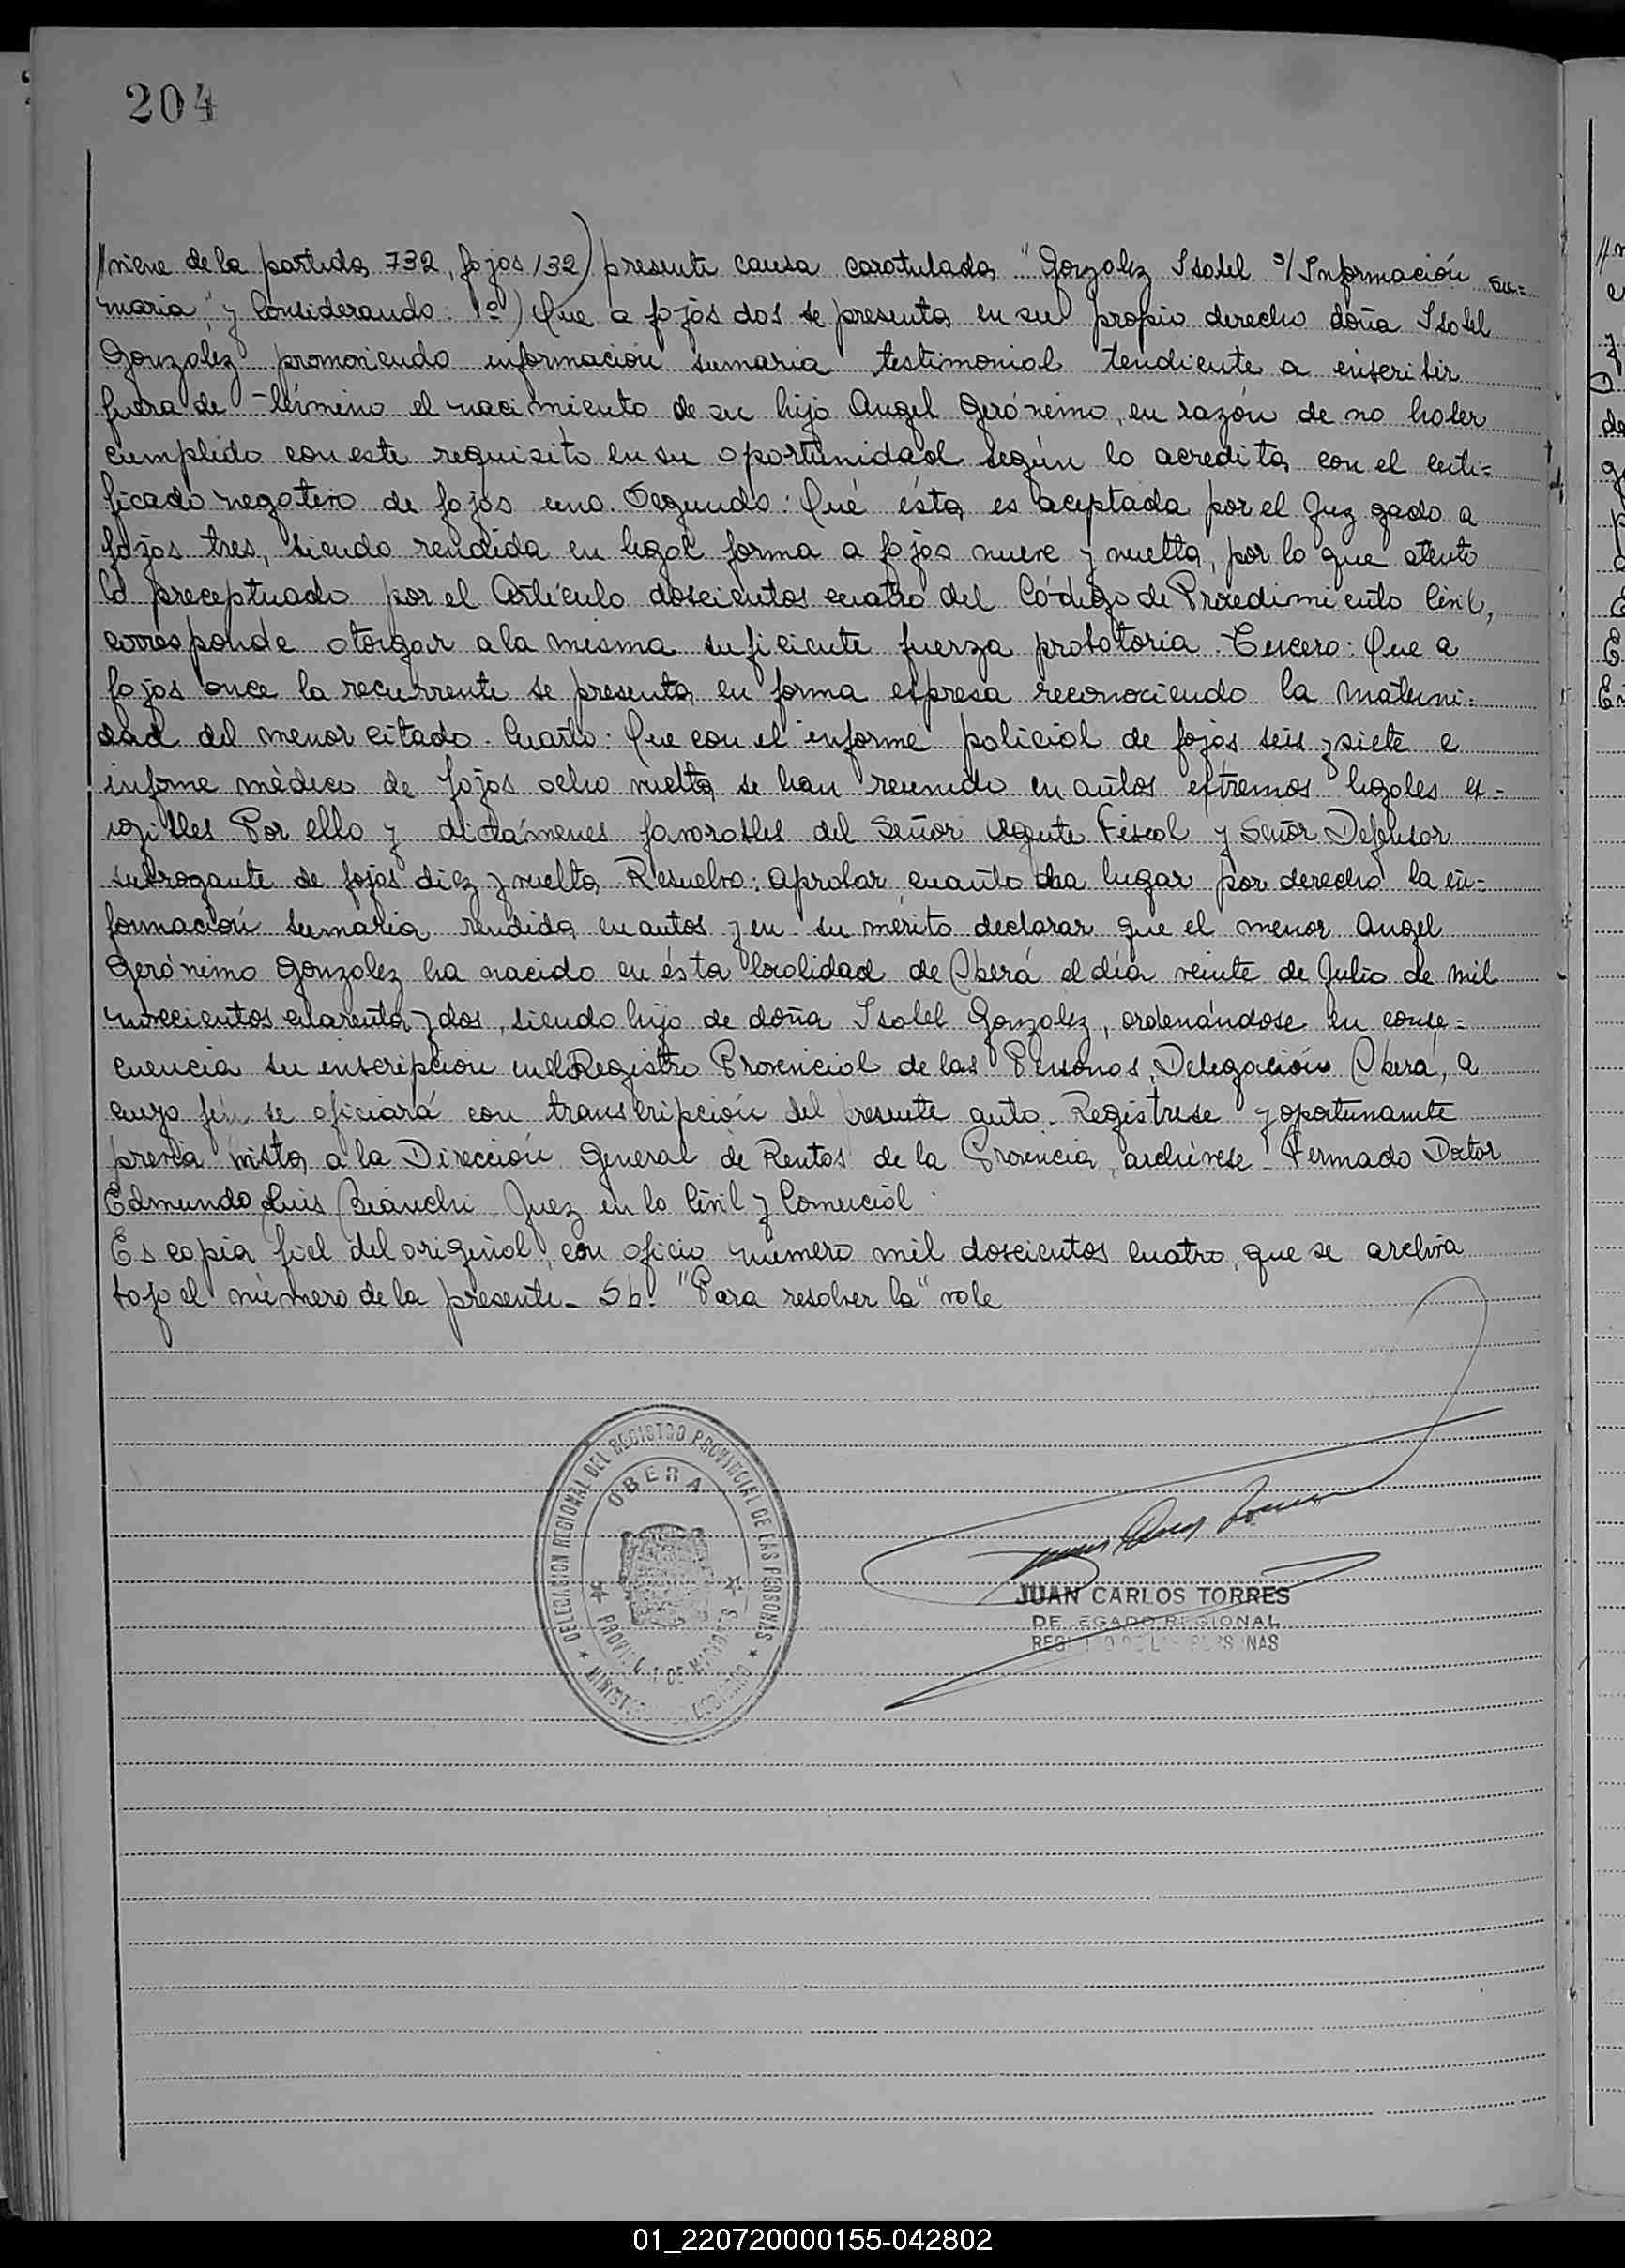 204
//viene de la partida 732, fojas 132) presente causa caratulada "Gonzalez Isabel s/ Información su=
maria," y Considerando: 1º) Que a fojas dos se presenta en su propio derecho doña Isabel
Gonzalez promoviendo información sumaria testimonial tendiente a inscribir
fuera de término el nacimiento de su hijo Angel Gerónimo, en razón de no haber
cumplido con este requisito en su oportunidad según lo acredita con el certi=
ficado negativo de fojas uno. Segundo: Que ésta es aceptada por el Juzgado a
fojas tres, siendo rendida en legal forma a fojas nueve y vuelta, por lo que atento
lo preceptuado por el Artículo doscientos cuatro del Código de Procedimiento Civil,
corresponde otorgar a la misma suficiente fuerza probatoria. Tercero: Que a
fojas once la recurrente se presenta en forma expresa reconociendo la materni=
dad del menor citado. Cuarto: Que con el informe policial de fojas seis y siete e
informe médico de fojas ocho vuelta se han reunido en autos extremos legales ex=
igibles Por ello y dictámenes favorables del Señor Agente Fiscal y Señor Defensor
subrogante de fojas diez y vuelta Resuelvo: Aprobar cuanto ha lugar por derecho la in=
formación sumaria rendida en autos y en su mérito declarar que el menor Angel
Gerónimo Gonzalez ha nacido en ésta localidad de Oberá el día veinte de Julio de mil
novecientos cuarenta y dos, siendo hijo de doña Isabel Gonzalez, ordenándose en conse=
cuencia su inscripción en el Registro Provincial de las Personas, Delegación Oberá, a
cuyo fin se oficiará con transcripción del presente auto. Regístrese y oportunamente
previa vista a la Dirección General de Rentas de la Provincia, archívese. Firmado Doctor
Edmundo Luis Bianchi Juez en lo Civil y Comercial.
Es copia fiel del original, con oficio número mil doscientos cuatro, que se archiva
bajo el número de la presente. Sb. "Para resolver la" vale
DELEGACION REGIONAL DEL REGISTRO PROVINCIAL DE LAS PERSONAS
OBERA
PROVINCIA DE MISIONES
MINISTERIO DE GOBIERNO
JUAN CARLOS TORRES
DELEGADO REGIONAL
REGISTRO DE LAS PERSONAS
01_220720000155-042802